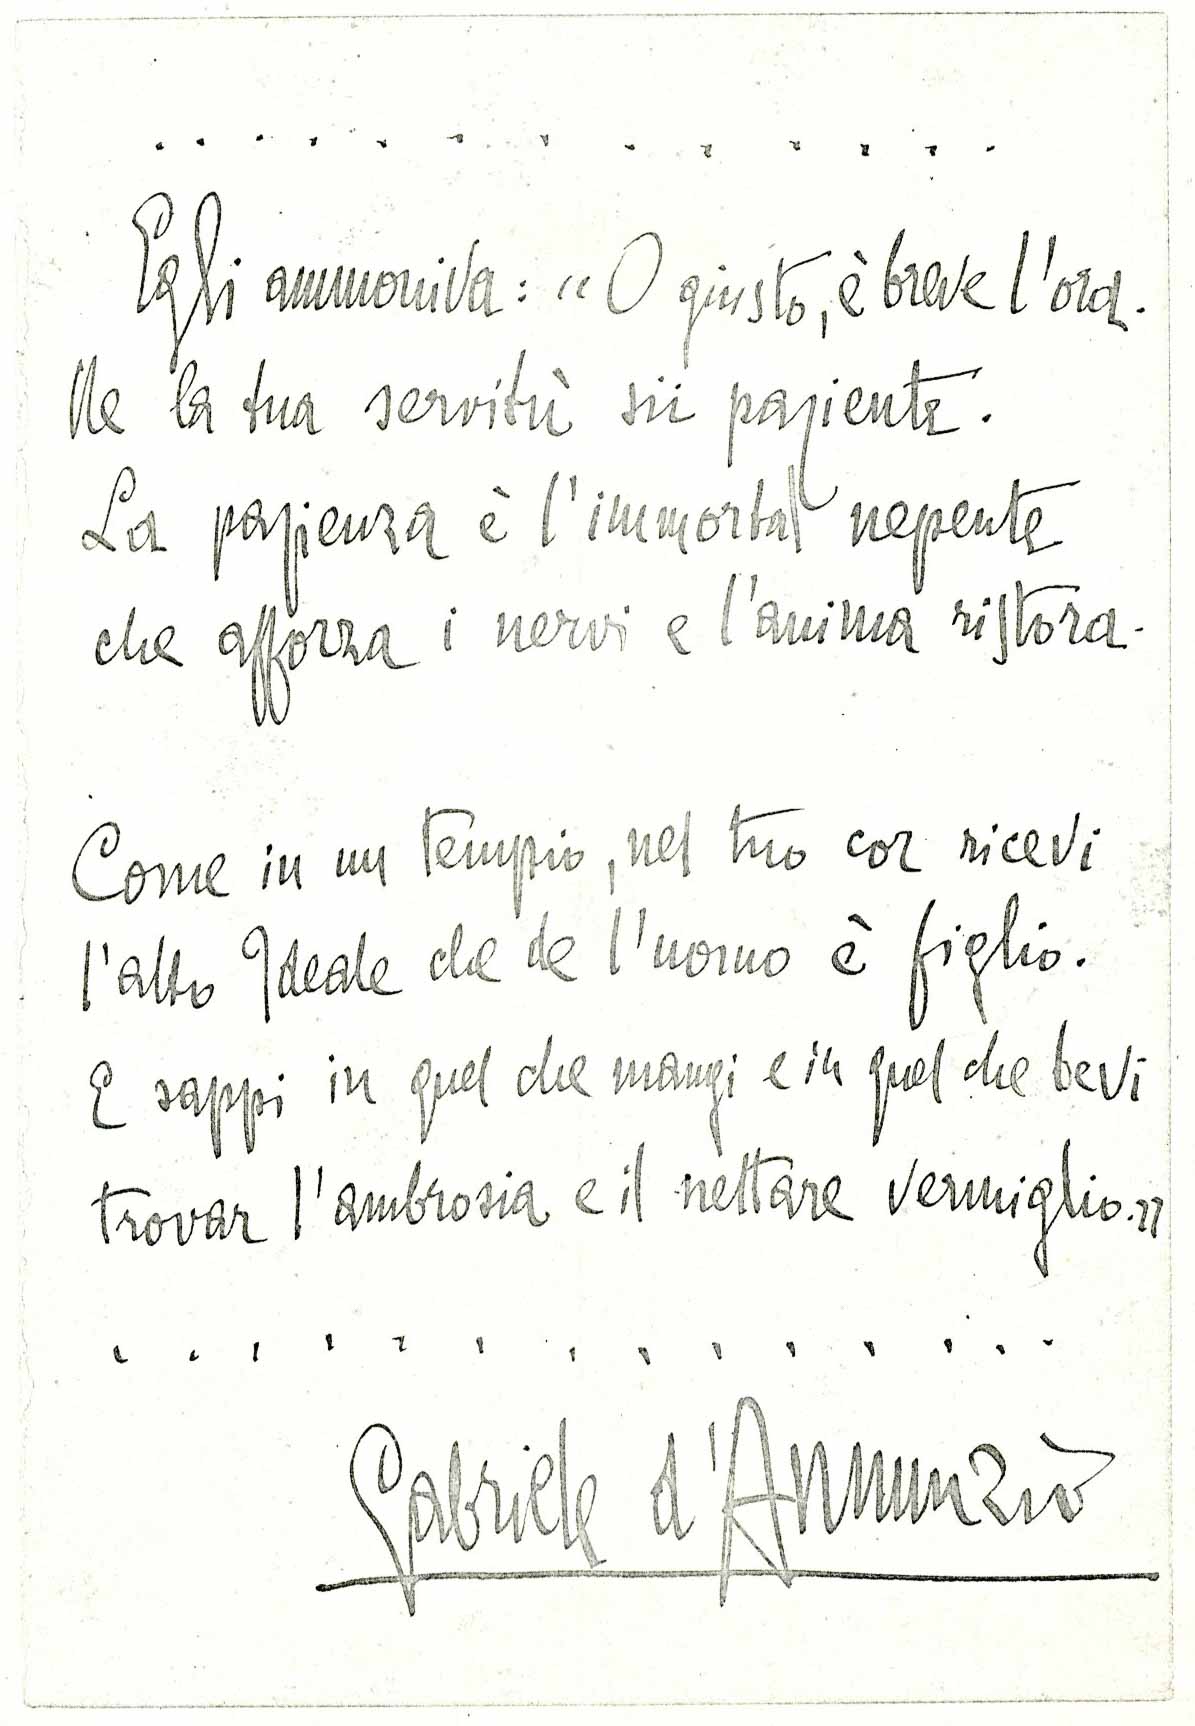 . . . . . . . . . . . . . . .
Egli ammoniva: “O giusto, è breve l'ora.
Ne la tua servitù sii paziente.
La pazienza è l'immortal nepente
che afforza i nervi e l'anima ristora.
Come in un tempio, nel tuo cor ricevi
l'alto Ideale che de l'uomo è figlio.
E sappi in quel che mangi e in quel che bevi
trovar l'ambrosia e il nettare vermiglio.”
. . . . . . . . . . . . . . .
Gabriele d'Annunzio